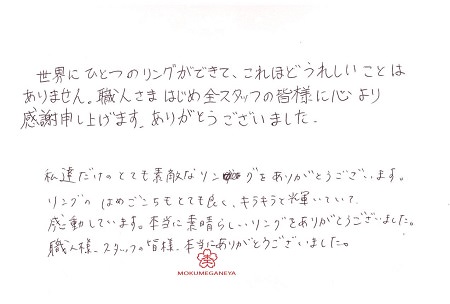 世界にひとつのリングができて、これほどうれしいことは
ありません。職人さまはじめ全スタッフの皆様に心より
感謝申し上げます。ありがとうございました。
私達だけのとても素敵なリングをありがとうございます。
リングのはめごこちもとても良く、キラキラと輝いていて、
感動しています。本当に素晴らしいリングをありがとうございました。
職人様、スタッフの皆様、本当にありがとうございました。
MOKUMEGANEYA